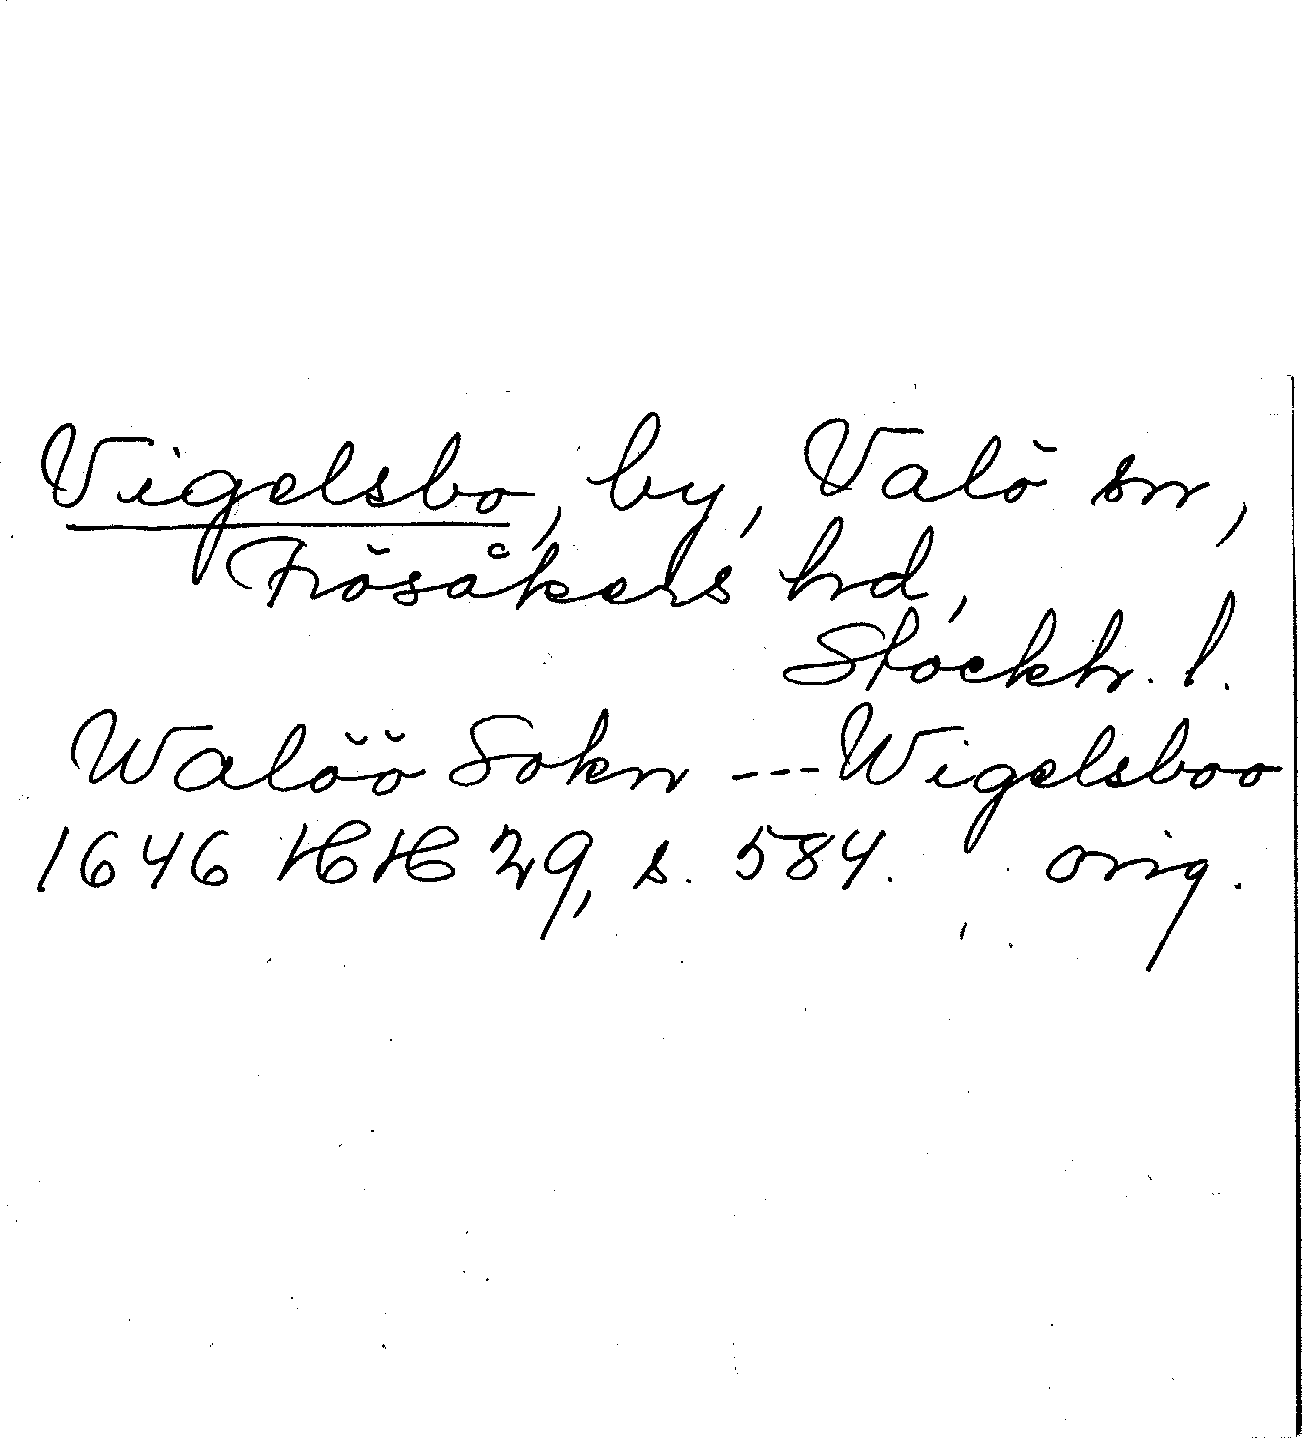 Vigelsbo, by, Valö sn,
Frösåkers hd,
Stockh. l.
Walöö Sokn --- Wigelsboo
1646 HH 29, s. 584. orig.